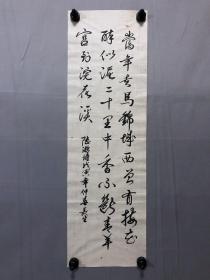 當年走馬錦城西曾为梅花
醉似泥二十里中香不斷青羊
宮到浣花溪
陸游詩戊寅年仲春長生